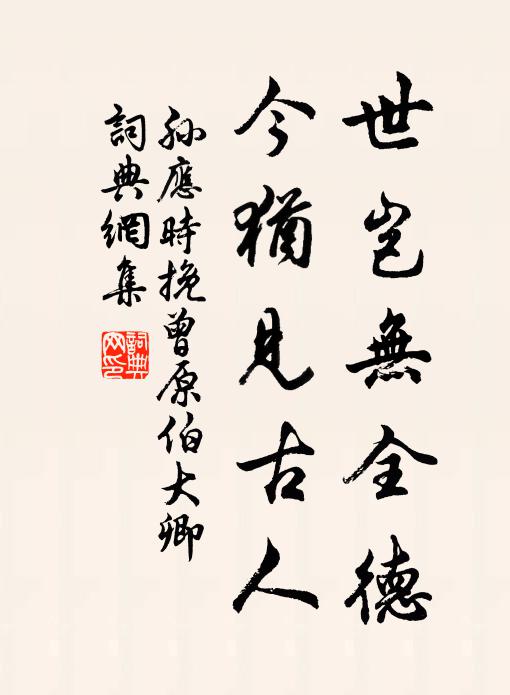 世豈無全德
今猶見古人
孫應時挽曾原伯大卿
詞典網集
詞典網印